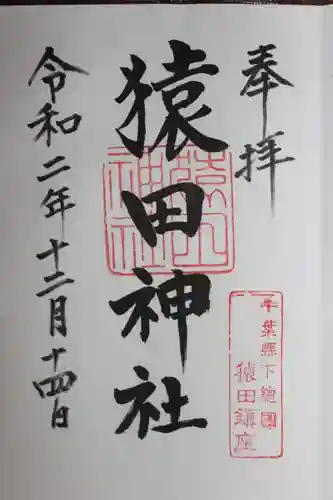 奉拝
千葉縣下總國
猿田鎮座
猿田神社
猿田神社
令和二年十二月十四日